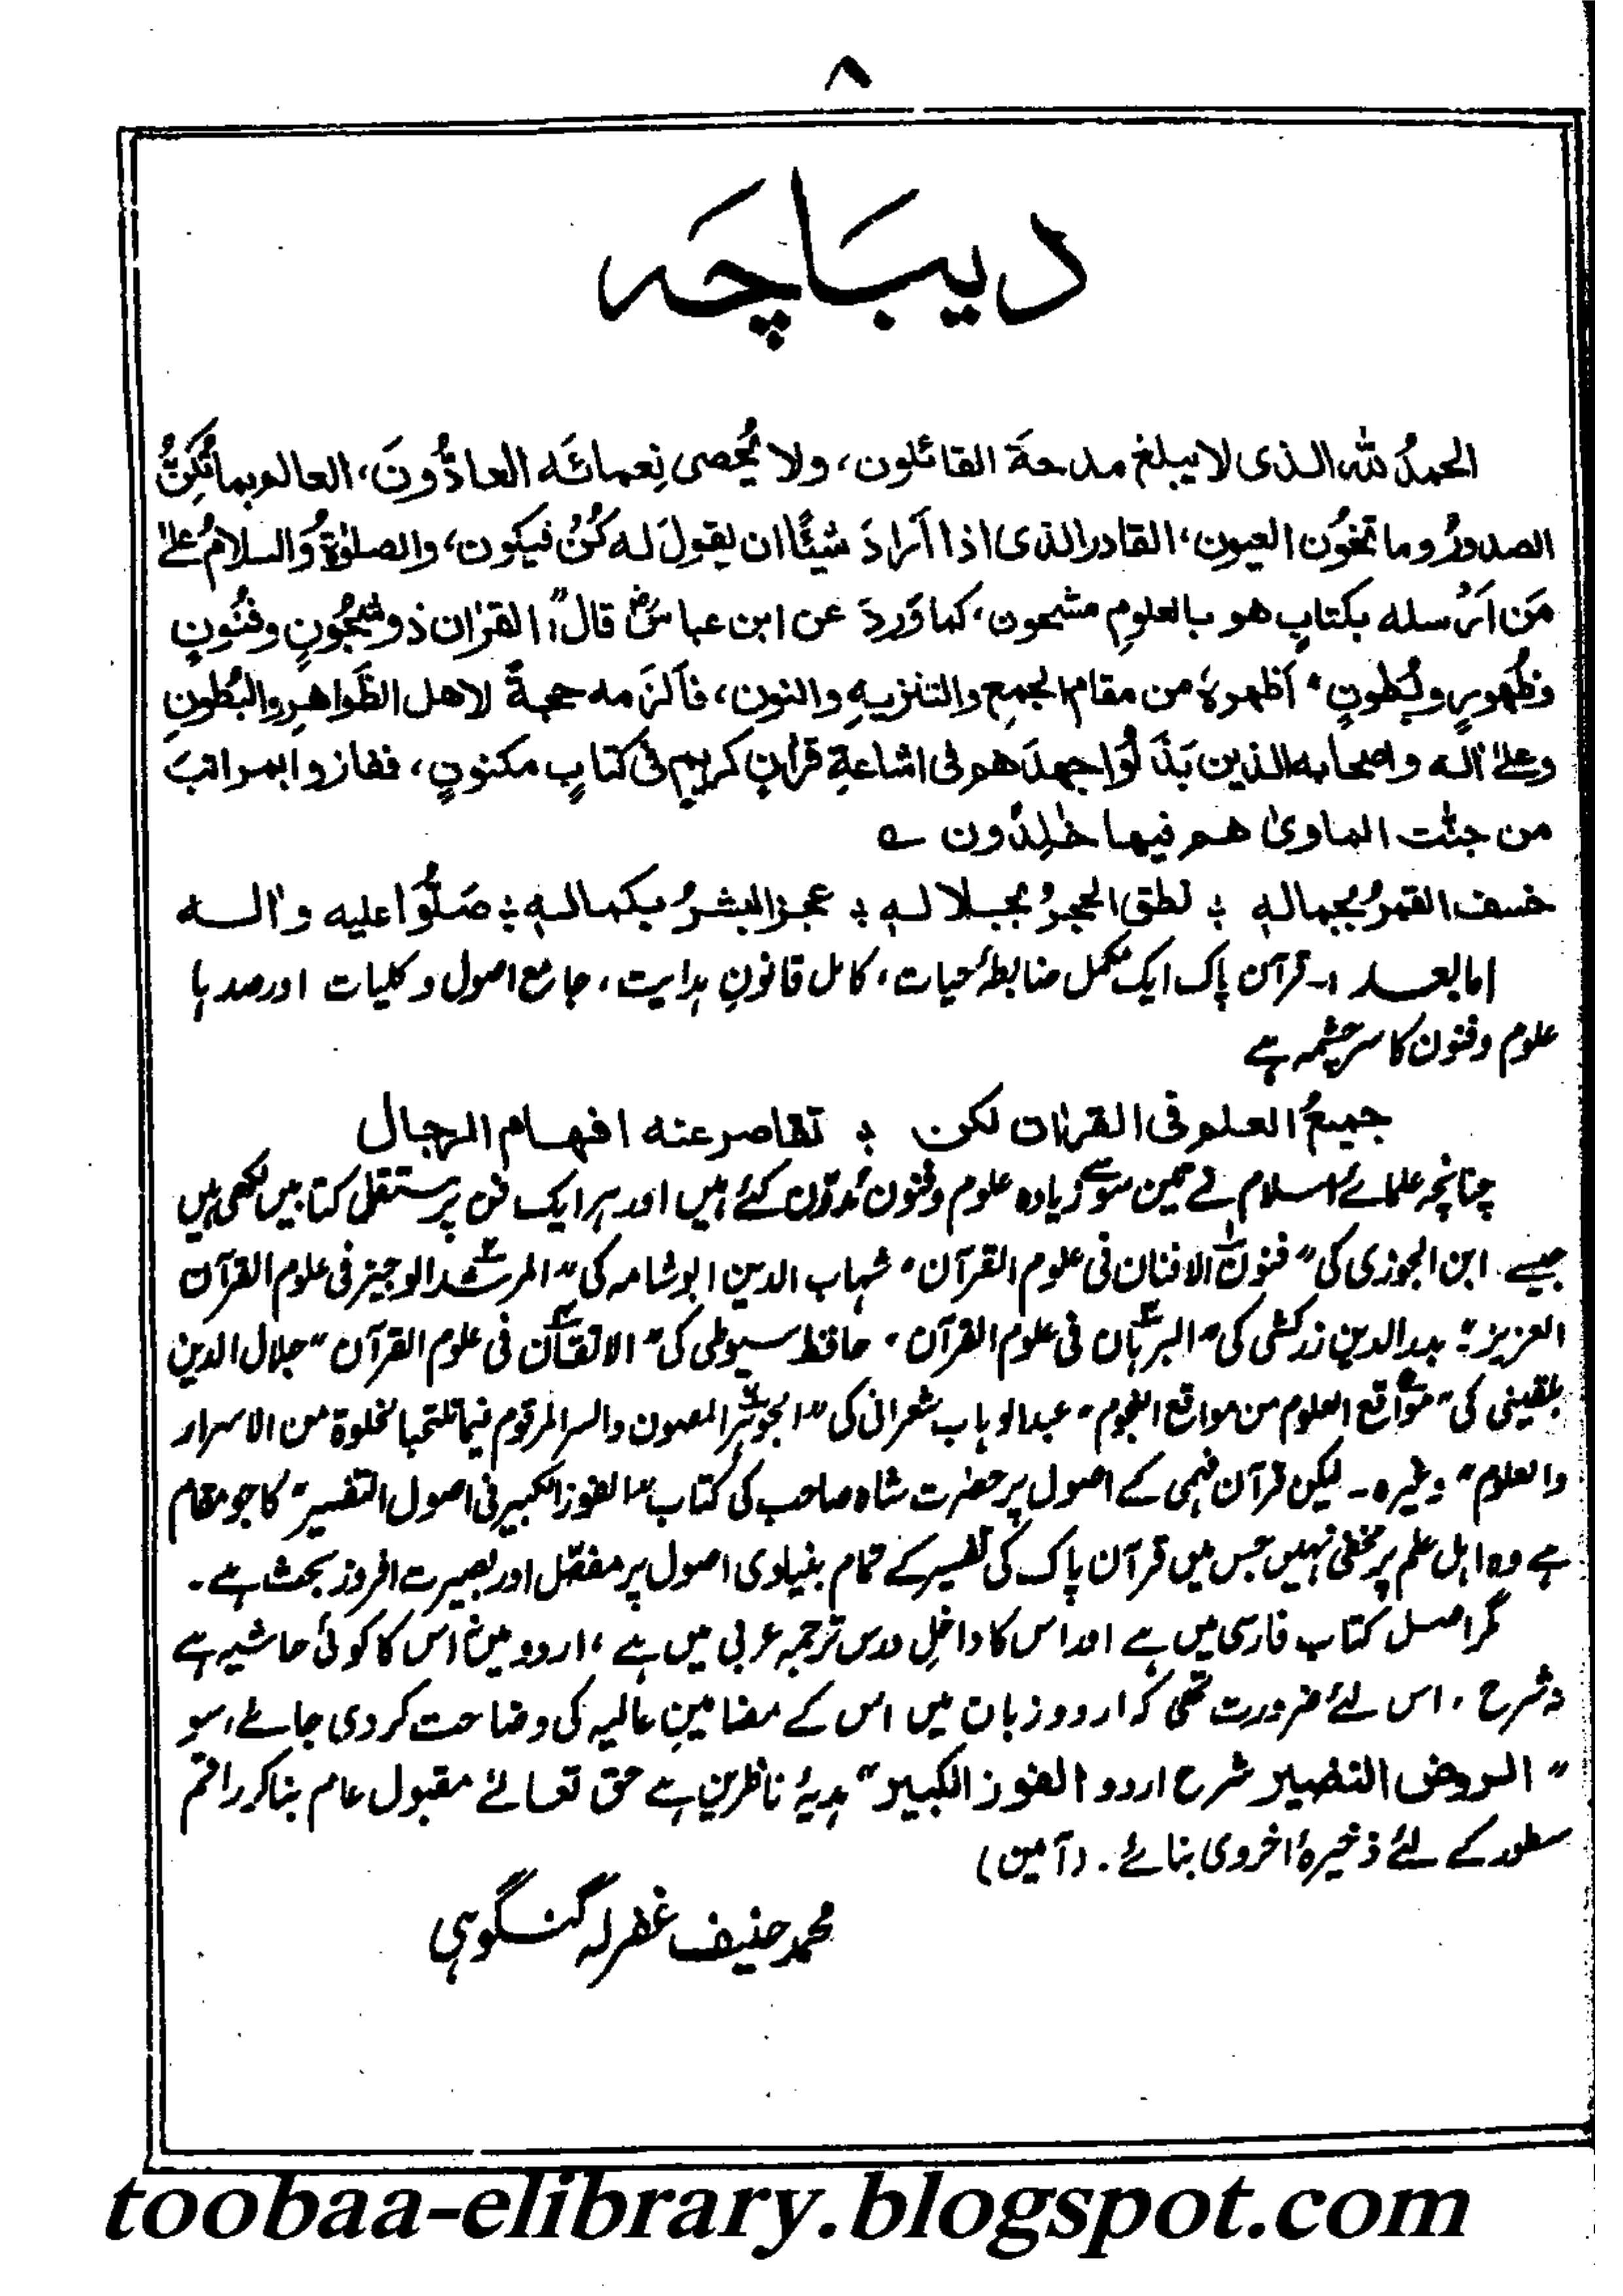 ۸
دیبَاچَہ
الحمدُ للہ الذی لا یبلغ مدحةَ القائلون، ولا یُحصی نِعمائَہ العادُّونَ، العالم بما تُکِنُّ
الصدورُ وما تخوُن العیون، القادر الذی اذا اَرادَ شیئًا ان یقولَ لہ کُنْ فیکون، والصلوٰۃُ والسلامُ علےٰ
مَن اَرْسلہ بکتابٍ ھو بالعلومِ مشحون، کما وَردَ عن ابن عباسؓ قال: "القراٰن ذو شُجُونٍ وفنُونٍ
وظُھورٍ وبُطونٍ" اَظھرہٗ من مقام الجمعِ والتنزیہِ والنون، فاَلزمہ حجةً لاھل الظَّواھرِ والبُطونِ
وعلےٰ اٰلہ واصحابہ الذین بَذَلُوا جھدَھم فی اشاعةِ قراٰنٍ کریمٍ فی کتابٍ مکنونٍ، ففازوا بمراتبَ
من جنّٰت الماوىٰ ھم فیھا خٰلِدُون ؎
خسف القمرُ بجمالہٖ ؛ نطق الحجرُ بجلالہٖ ؛ عجز البشرُ بکمالہٖ ؛ صَلُّوا علیہ واٰلہ
اما بعد :۔ قرآن پاک ایک مکمل ضابطۂ حیات، کامل قانونِ ہدایت، جامع اصول و کلیات اور صدہا
علوم و فنون کا سرچشمہ ہے
جمیعُ العلم فی القراٰن لکن ؛ تقاصر عنہ افھام الرجال
چنانچہ علمائے اسلام نے تین سو سے زیادہ علوم و فنون مُدوّن کئے ہیں اور ہر ایک فن پر مستقل کتابیں لکھی ہیں
جیسے ابن الجوزی کی "فنون الافنان فی علوم القرآن" شہاب الدین ابو شامہ کی "المرشد الوجیز فی علوم القرآن
العزیز" بدر الدین زرکشی کی "البرہان فی علوم القرآن" حافظ سیوطی کی "الاتقان فی علوم القرآن" جلال الدین
بلقینی کی "مواقع العلوم من مواقع النجوم" عبد الوہاب شعرانی کی "الجوہر المصون والسر المرقوم فیما تنتجہ الخلوة من الاسرار
والعلوم" وغیرہ۔ لیکن قرآن فہمی کے اصول پر حضرت شاہ صاحب کی کتاب "الفوز الکبیر فی اصول التفسیر" کا جو مقام
ہے وہ اہل علم پر مخفی نہیں جس میں قرآن پاک کی تفسیر کے تمام بنیادی اصول پر مفصّل اور بصیرت افروز بحث ہے۔
مگر اصل کتاب فارسی میں ہے اور اس کا داخلِ درس ترجمہ عربی میں ہے، اردو میں نہ اس کا کوئی حاشیہ ہے
نہ شرح، اس لئے ضرورت تھی کہ اردو زبان میں اس کے مضامینِ عالیہ کی وضاحت کر دی جائے، سو
"الروض النضیر شرح اردو الفوز الکبیر" ہدیۂ ناظرین ہے حق تعالےٰ مقبول عام بنا کر راقم
سطور کے لئے ذخیرۂ اخروی بنائے۔ (آمین)
محمد حنیف غفرلہ گنگوہی
toobaa-elibrary.blogspot.com